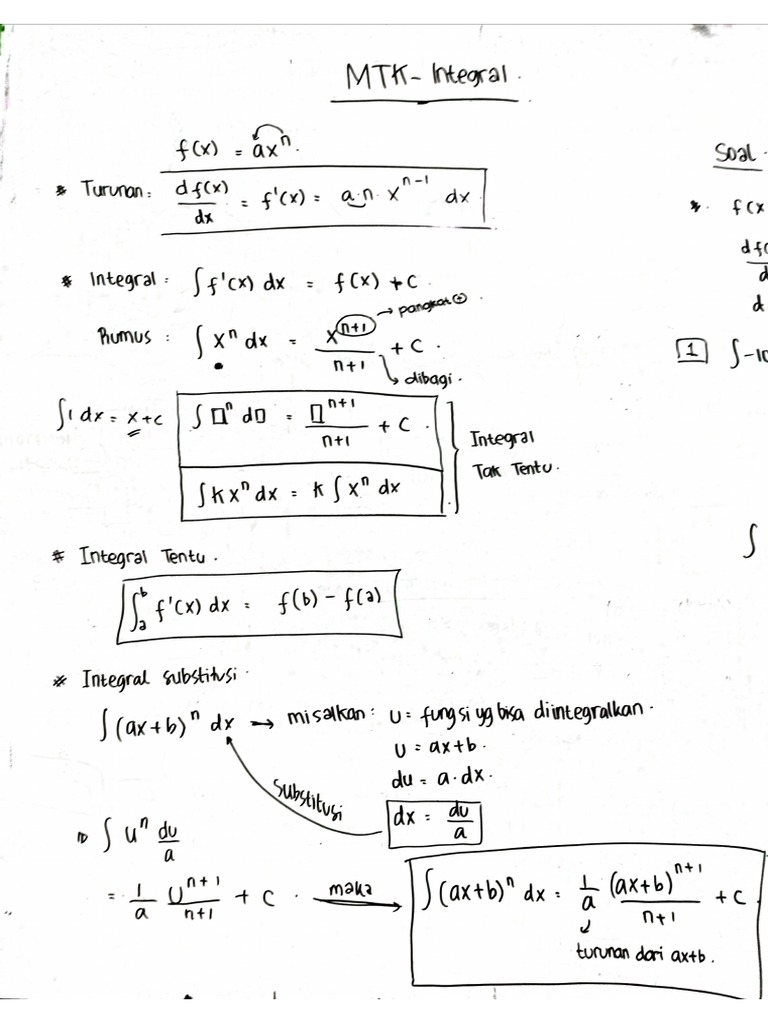 MTK - Integral.
f(x) = ax^n.
* Turunan: df(x)/dx = f'(x) = a.n. x^(n-1) dx
* Integral: ∫f'(x) dx = f(x) + C.
Rumus : ∫x^n dx = x^(n+1)/(n+1) + C.
→ pangkat ⊕.
↳ dibagi.
∫1 dx = x+c
∫□^n d□ = □^(n+1)/(n+1) + C.
∫kx^n dx = k∫x^n dx
Integral
Tak Tentu.
* Integral Tentu.
∫_a^b f'(x) dx = f(b) - f(a)
* Integral substitusi.
∫(ax+b)^n dx → misalkan: U = fungsi yg bisa diintegralkan.
U = ax+b.
du = a.dx.
dx = du/a
Substitusi
⇒ ∫U^n du/a
= 1/a U^(n+1)/(n+1) + C. maka →
∫(ax+b)^n dx = 1/a (ax+b)^(n+1)/(n+1) + C
turunan dari ax+b.
Soal.
*. f(x
df(
d
1 ∫-10
∫